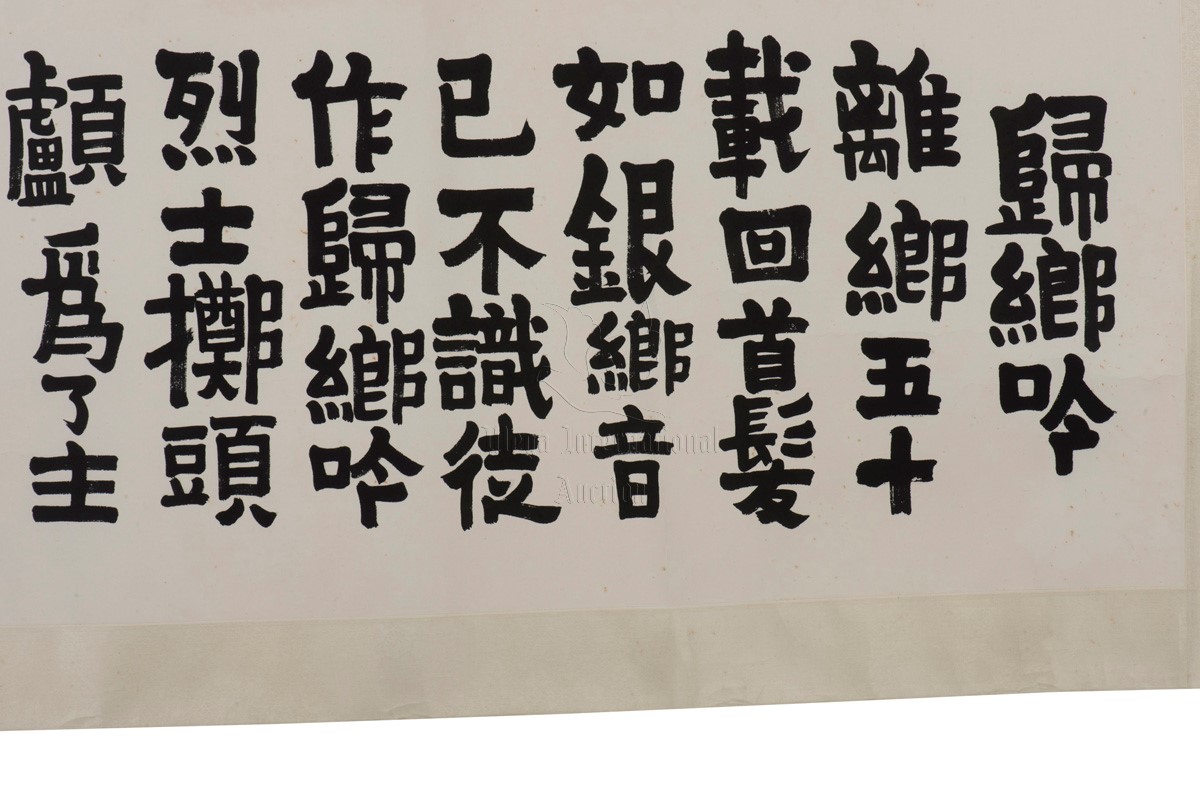 歸鄉吟
離鄉五十
載回首髮
如銀鄉音
已不識徒
作歸鄉吟
烈士擲頭
顱爲了主
International
Auction